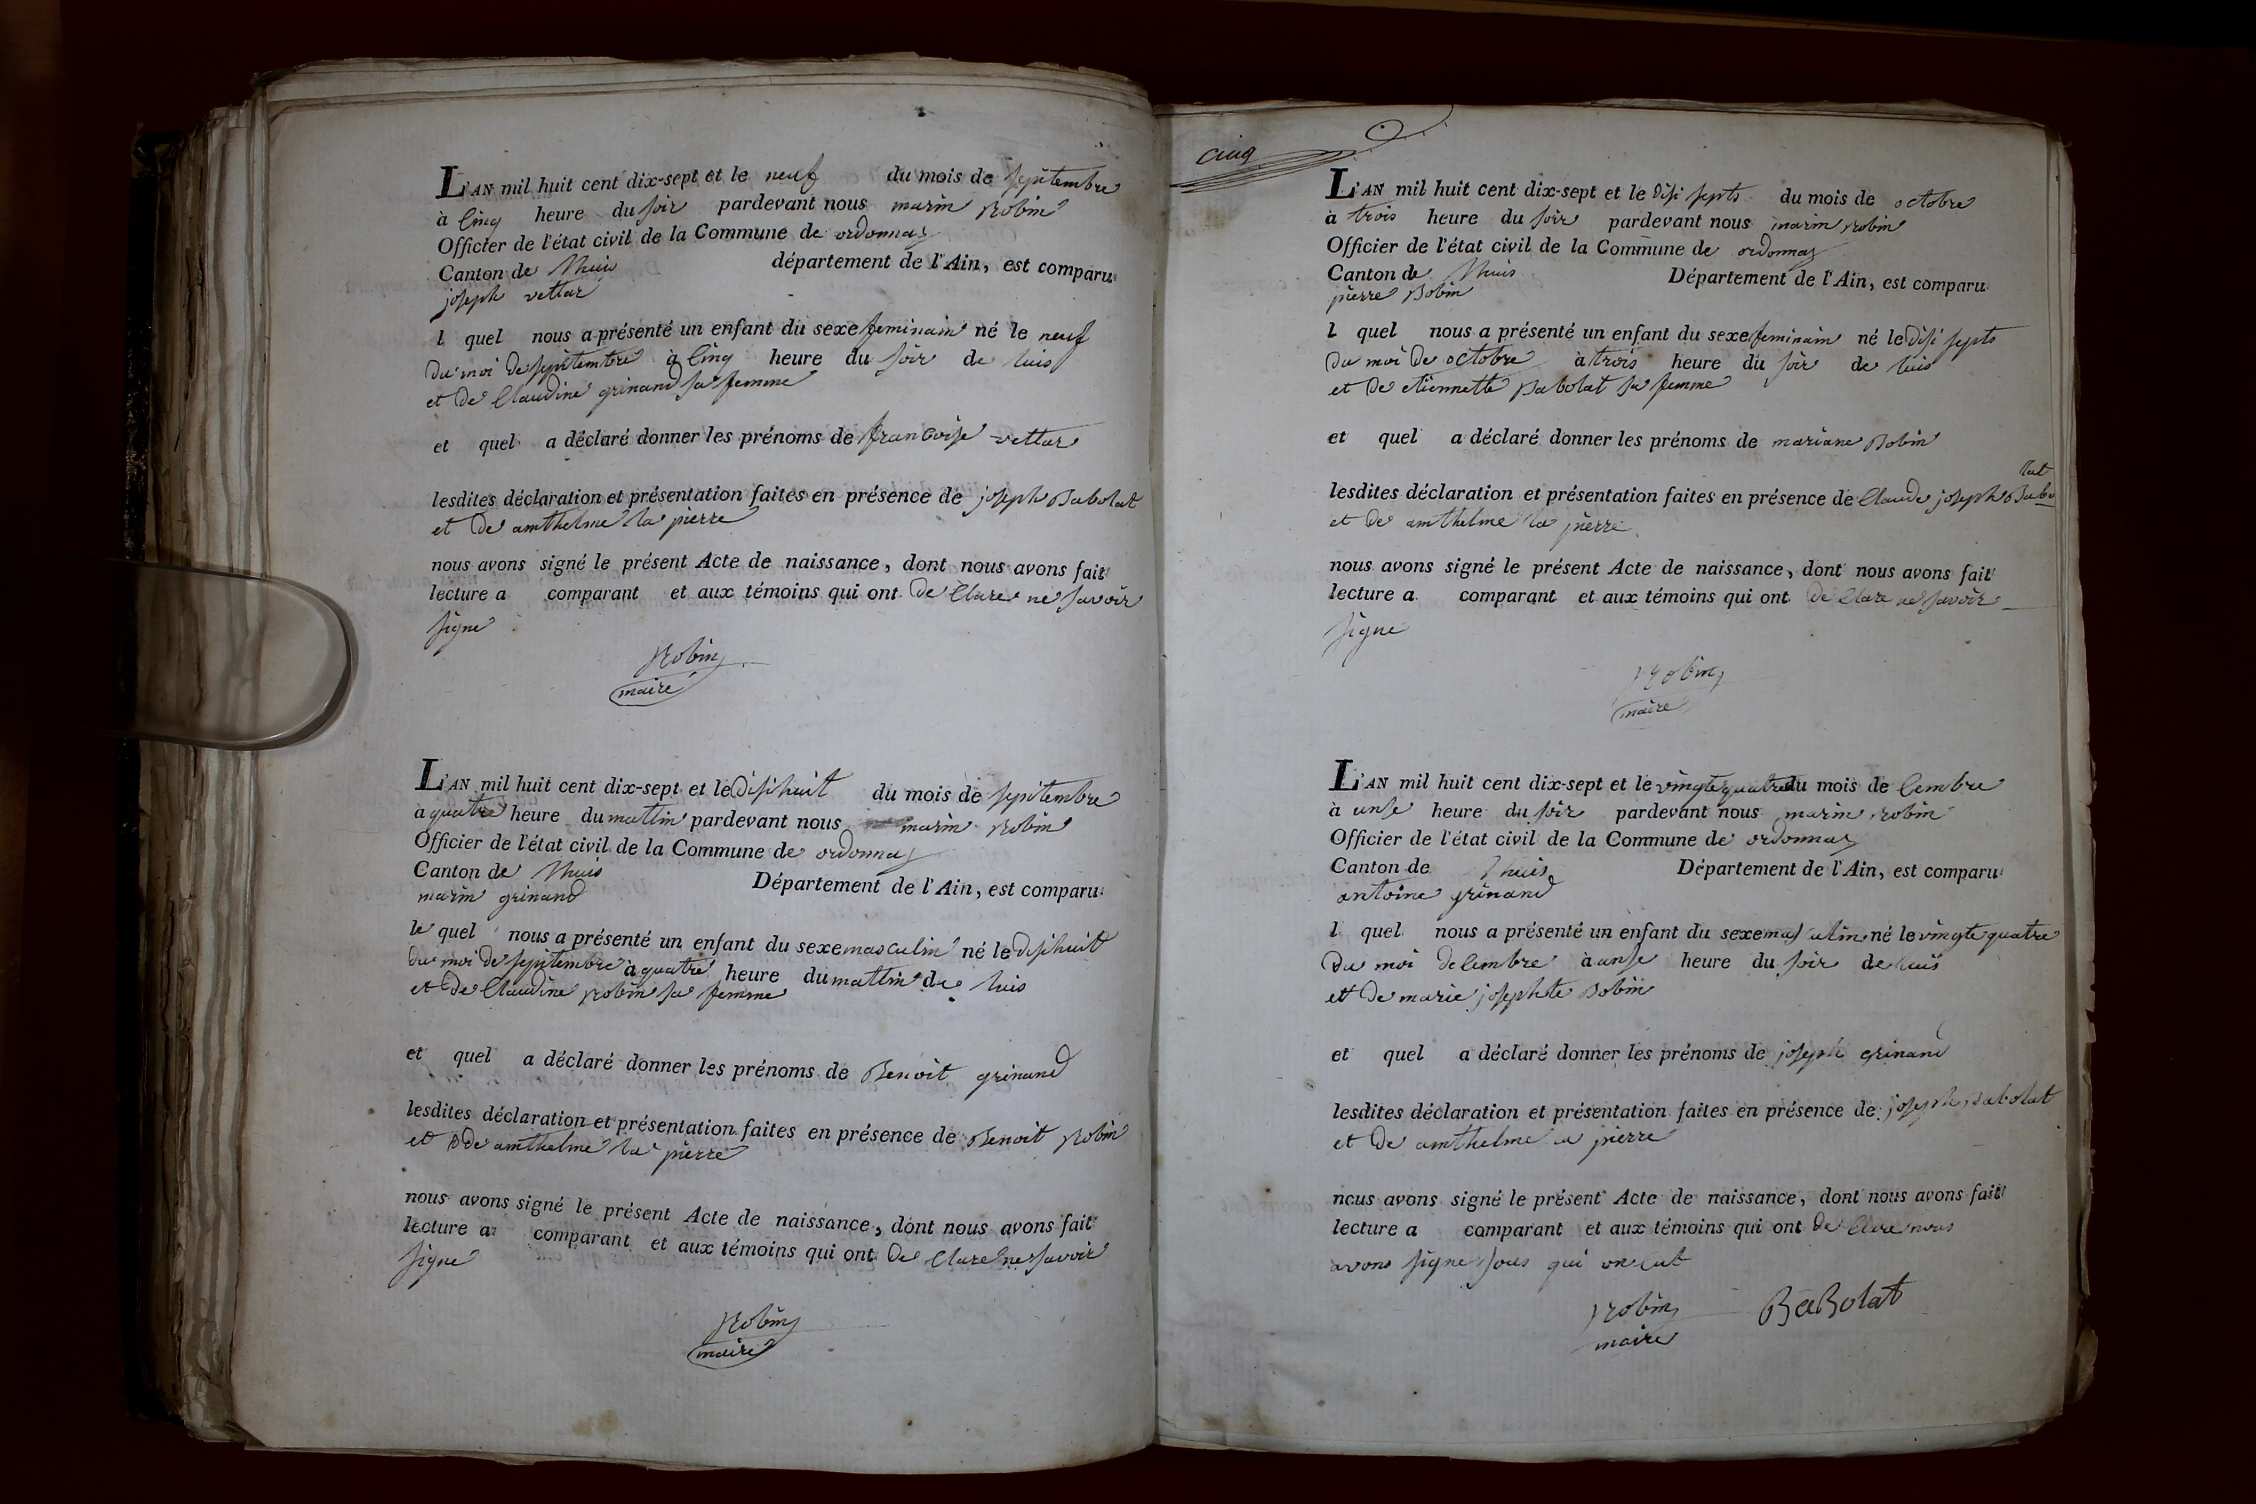 L'AN mil huit cent dix-sept et le neuf du mois de septembre
à Cinq heure du soir pardevant nous marin Robin
Officier de l'état civil de la Commune de ordonnaz
Canton de Lhuis département de l'Ain, est comparu
joseph vettar
l quel nous a présenté un enfant du sexe feminain né le neuf
du moi de septembre à Cinq heure du soir de luis
et de Claudine grinand sa femme
et quel a déclaré donner les prénoms de francoise vettar
lesdites déclaration et présentation faites en présence de joseph Babolat
et de amthelme la pierre
nous avons signé le présent Acte de naissance, dont nous avons fait
lecture a comparant et aux témoins qui ont de Clare ne savoir
signe
Robin
maire
L'AN mil huit cent dix-sept et le disihuit du mois de septembre
à quatre heure du mattin pardevant nous marin Robin
Officier de l'état civil de la Commune de ordonnaz
Canton de Lhuis Département de l'Ain, est comparu
marin grinand
le quel nous a présenté un enfant du sexe masculin né le disihuit
du moi de septembre à quatre heure du mattin de luis
et de Claudine Robin sa femme
et quel a déclaré donner les prénoms de Benoit grinand
lesdites déclaration et présentation faites en présence de Benoit Robin
et de amthelme la pierre
nous avons signé le présent Acte de naissance, dont nous avons fait
lecture a comparant et aux témoins qui ont de Clare ne savoir
signe
Robin
maire
cinq
L'AN mil huit cent dix-sept et le disi septs du mois de octobre
à trois heure du soir pardevant nous marin Robin
Officier de l'état civil de la Commune de ordonnaz
Canton de Lhuis Département de l'Ain, est comparu
pierre Bobin
l quel nous a présenté un enfant du sexe feminain né le disi septs
du moi de octobre à trois heure du soir de luis
et de etiennette Babolat sa femme
et quel a déclaré donner les prénoms de mariane Bobin
lat
lesdites déclaration et présentation faites en présence de Claude joseph Babo
et de amthelme la pierre
nous avons signé le présent Acte de naissance, dont nous avons fait
lecture a comparant et aux témoins qui ont de Clare ne savoir
signe
Robin
maire
L'AN mil huit cent dix-sept et le vingte quatre du mois de Cembre
à unse heure du soir pardevant nous marin Robin
Officier de l'état civil de la Commune de ordonnaz
Canton de Lhuis Département de l'Ain, est comparu
antoine grinand
l quel nous a présenté un enfant du sexe masculin né le vingte quatre
du moi deCembre à unse heure du soir de luis
et de marie josephte Bobin
et quel a déclaré donner les prénoms de joseph grinand
lesdites déclaration et présentation faites en présence de joseph Babolat
et de amthelme la pierre
nous avons signé le présent Acte de naissance, dont nous avons fait
lecture a comparant et aux témoins qui ont de Clare nous
avons signe sous qui
Robin BaBolat
maire